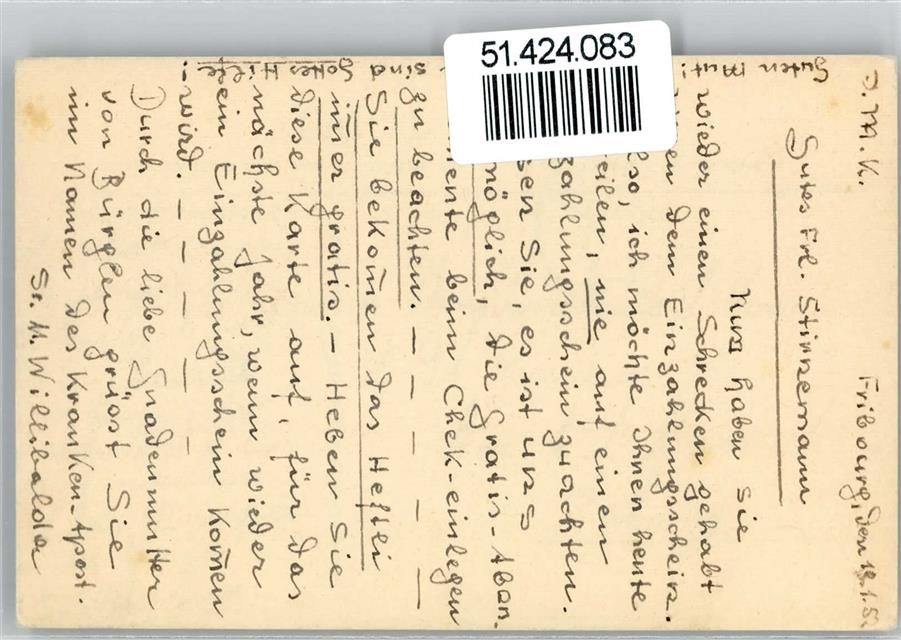 51.424.083
J. M. K.
Fribourg, den 12.1.5
Gutes Frl. Stinnesmann
Nun haben Sie
wieder einen Schrecken gehabt
dem Einzahlungsschein.
ich möchte Ihnen heute
nie auf einen
zahlungsschein zu achten.
Sie, es ist uns
möglich, die Gratis-Abon.
beim Chek-einlegen
zu beachten. — — — —
Sie bekom̄en das Heftli
im̄er gratis. – Heben Sie
diese Karte auf, für das
nächste Jahr, wenn wieder
ein Einzahlungsschein kom̄en
wird. — — — — —
Durch die liebe Gnadenmutter
von Bürglen grüsst Sie
im Namen des Kranken-Apost.
Sr. M. Willibalda
Guten Mut!
sind
Gottes